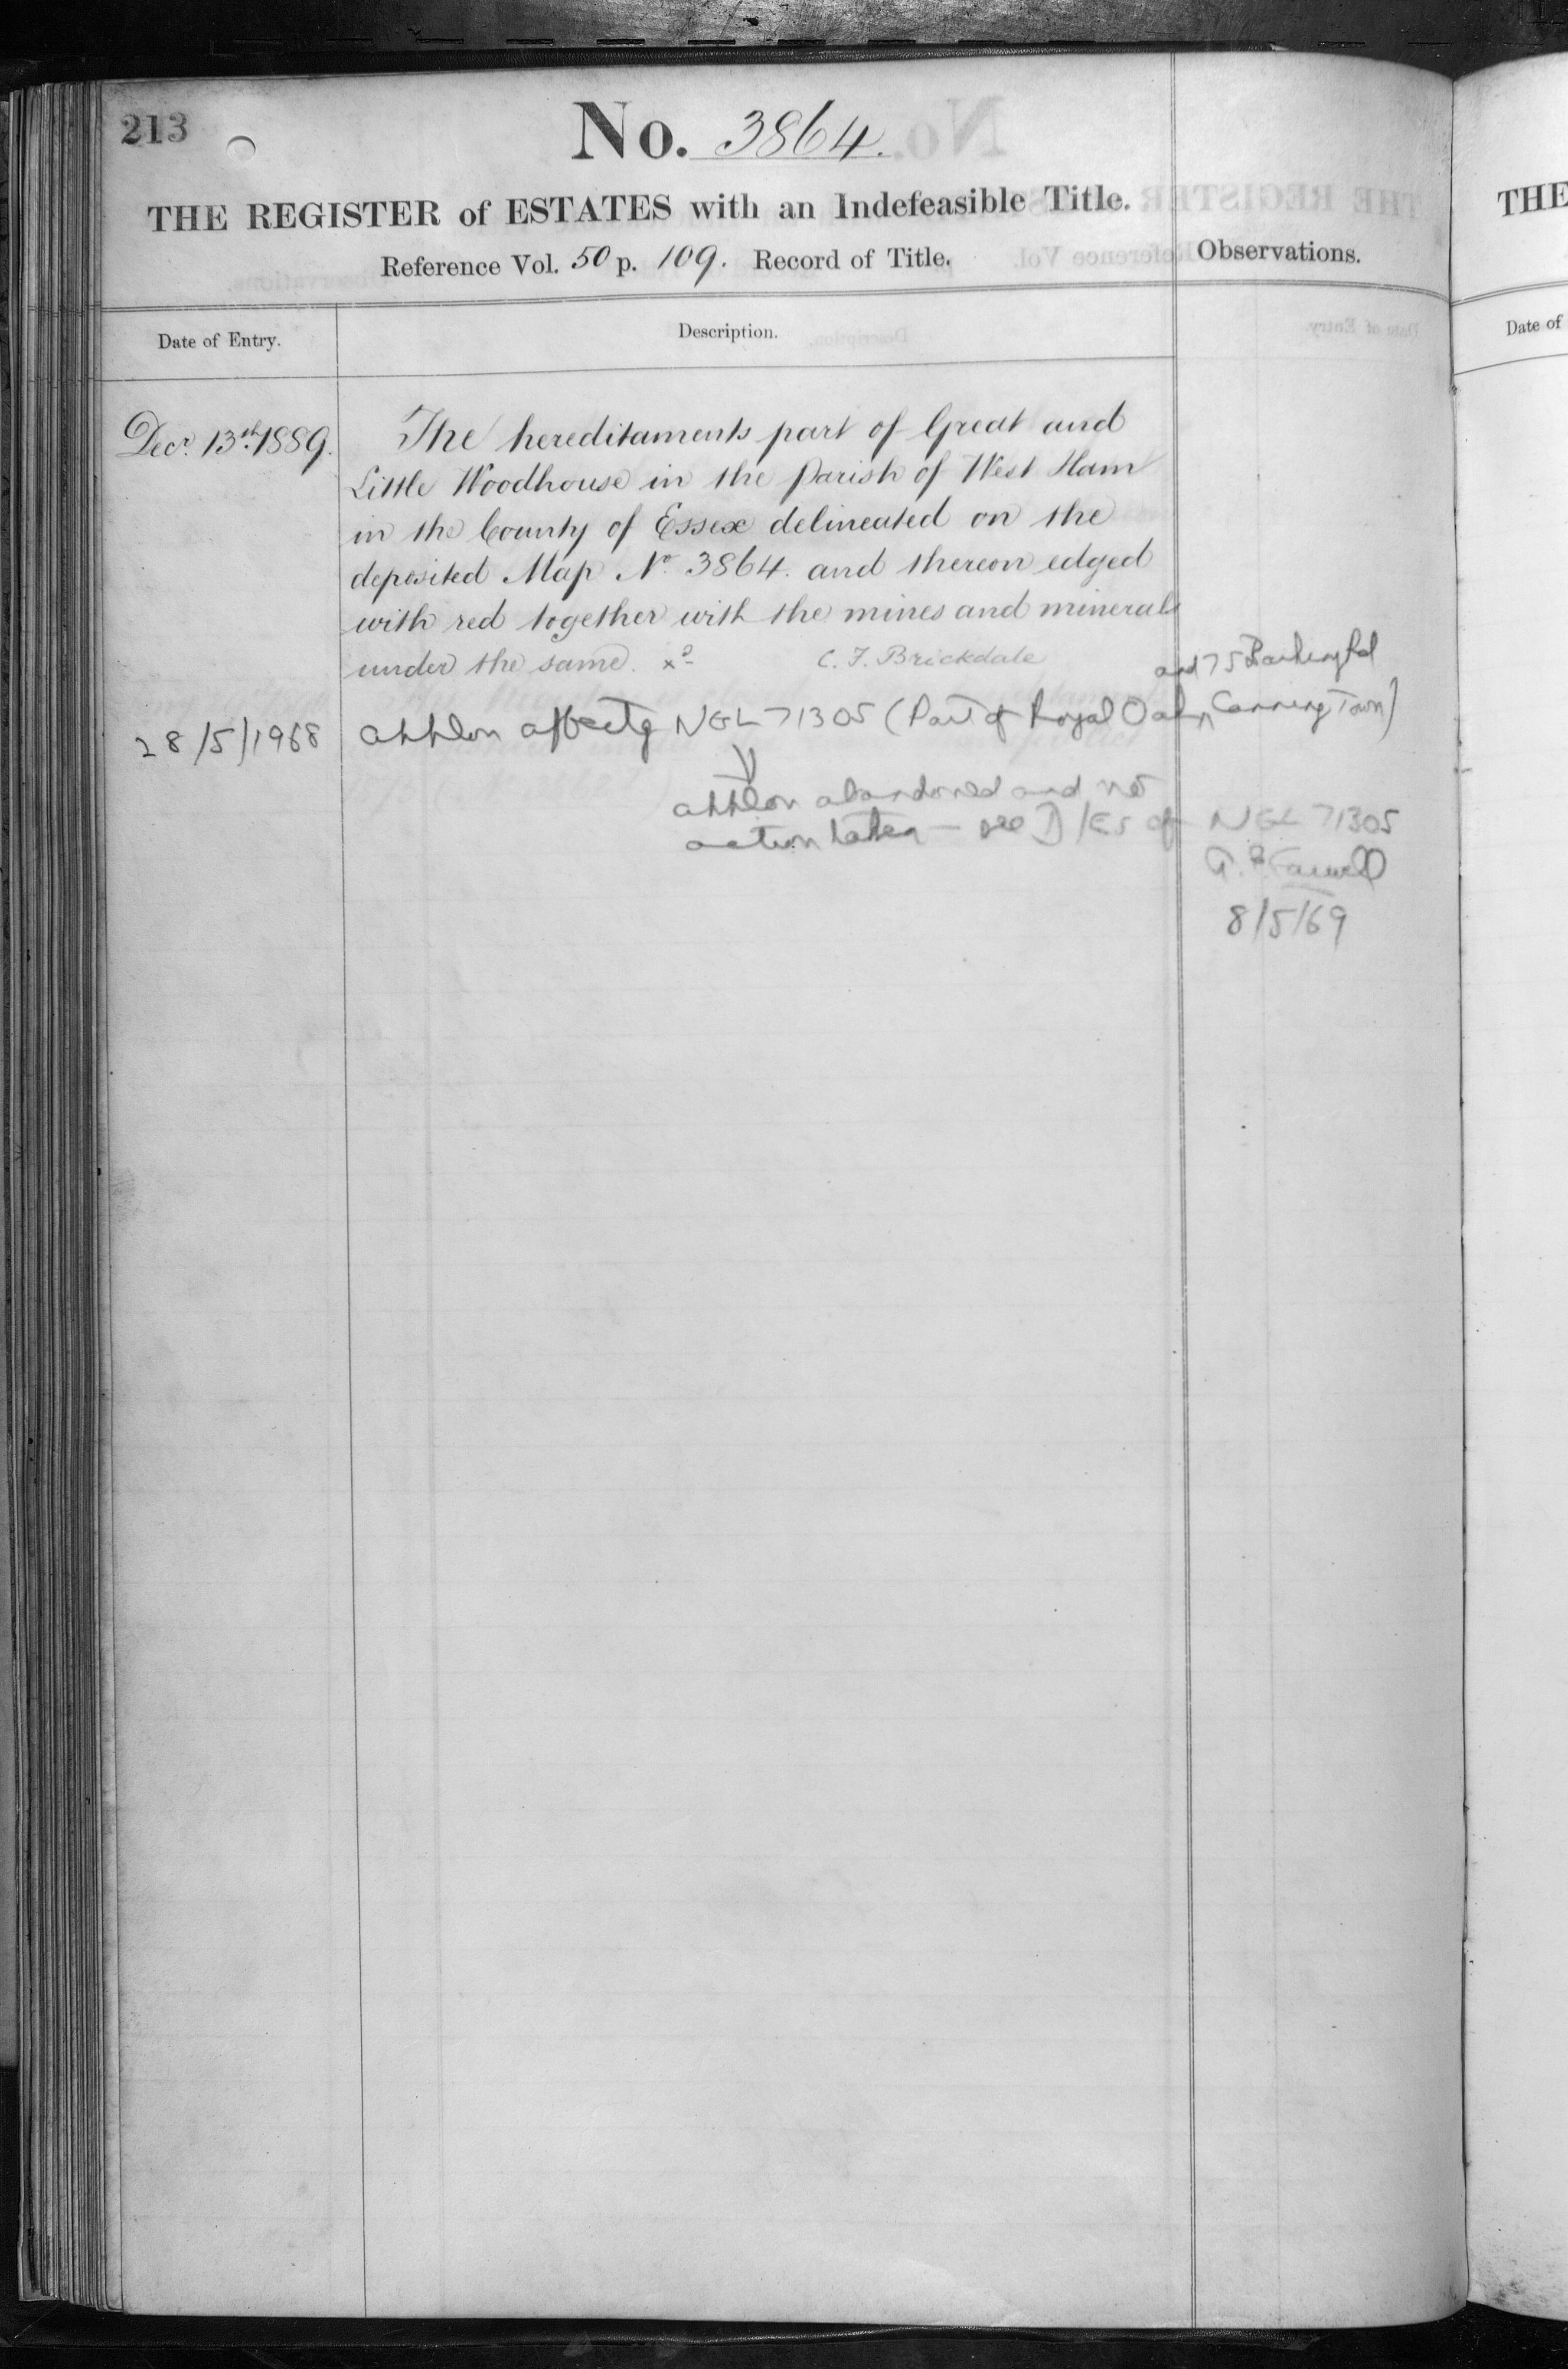 213
No. 3864.
THE REGISTER of ESTATES with an Indefeasible Title.
Reference Vol. 50 p. 109. Record of Title.
Observations.
Date of Entry.
Description.
Decr. 13th 1889.
The hereditaments part of Great and
Little Woodhouse in the Parish of West Ham
in the County of Essex delineated on the
deposited Map No. 3864. and thereon edged
with red together with the mines and minerals
under the same. C. F. Brickdale
and 75 Barking Rd
28/5/1968 applon affectg NGL 71305 (Part of Royal Oak, Canning Town)
applon abandoned and no
action taken – see D/Es of NGL 71305
8/5/69
THE
Date of